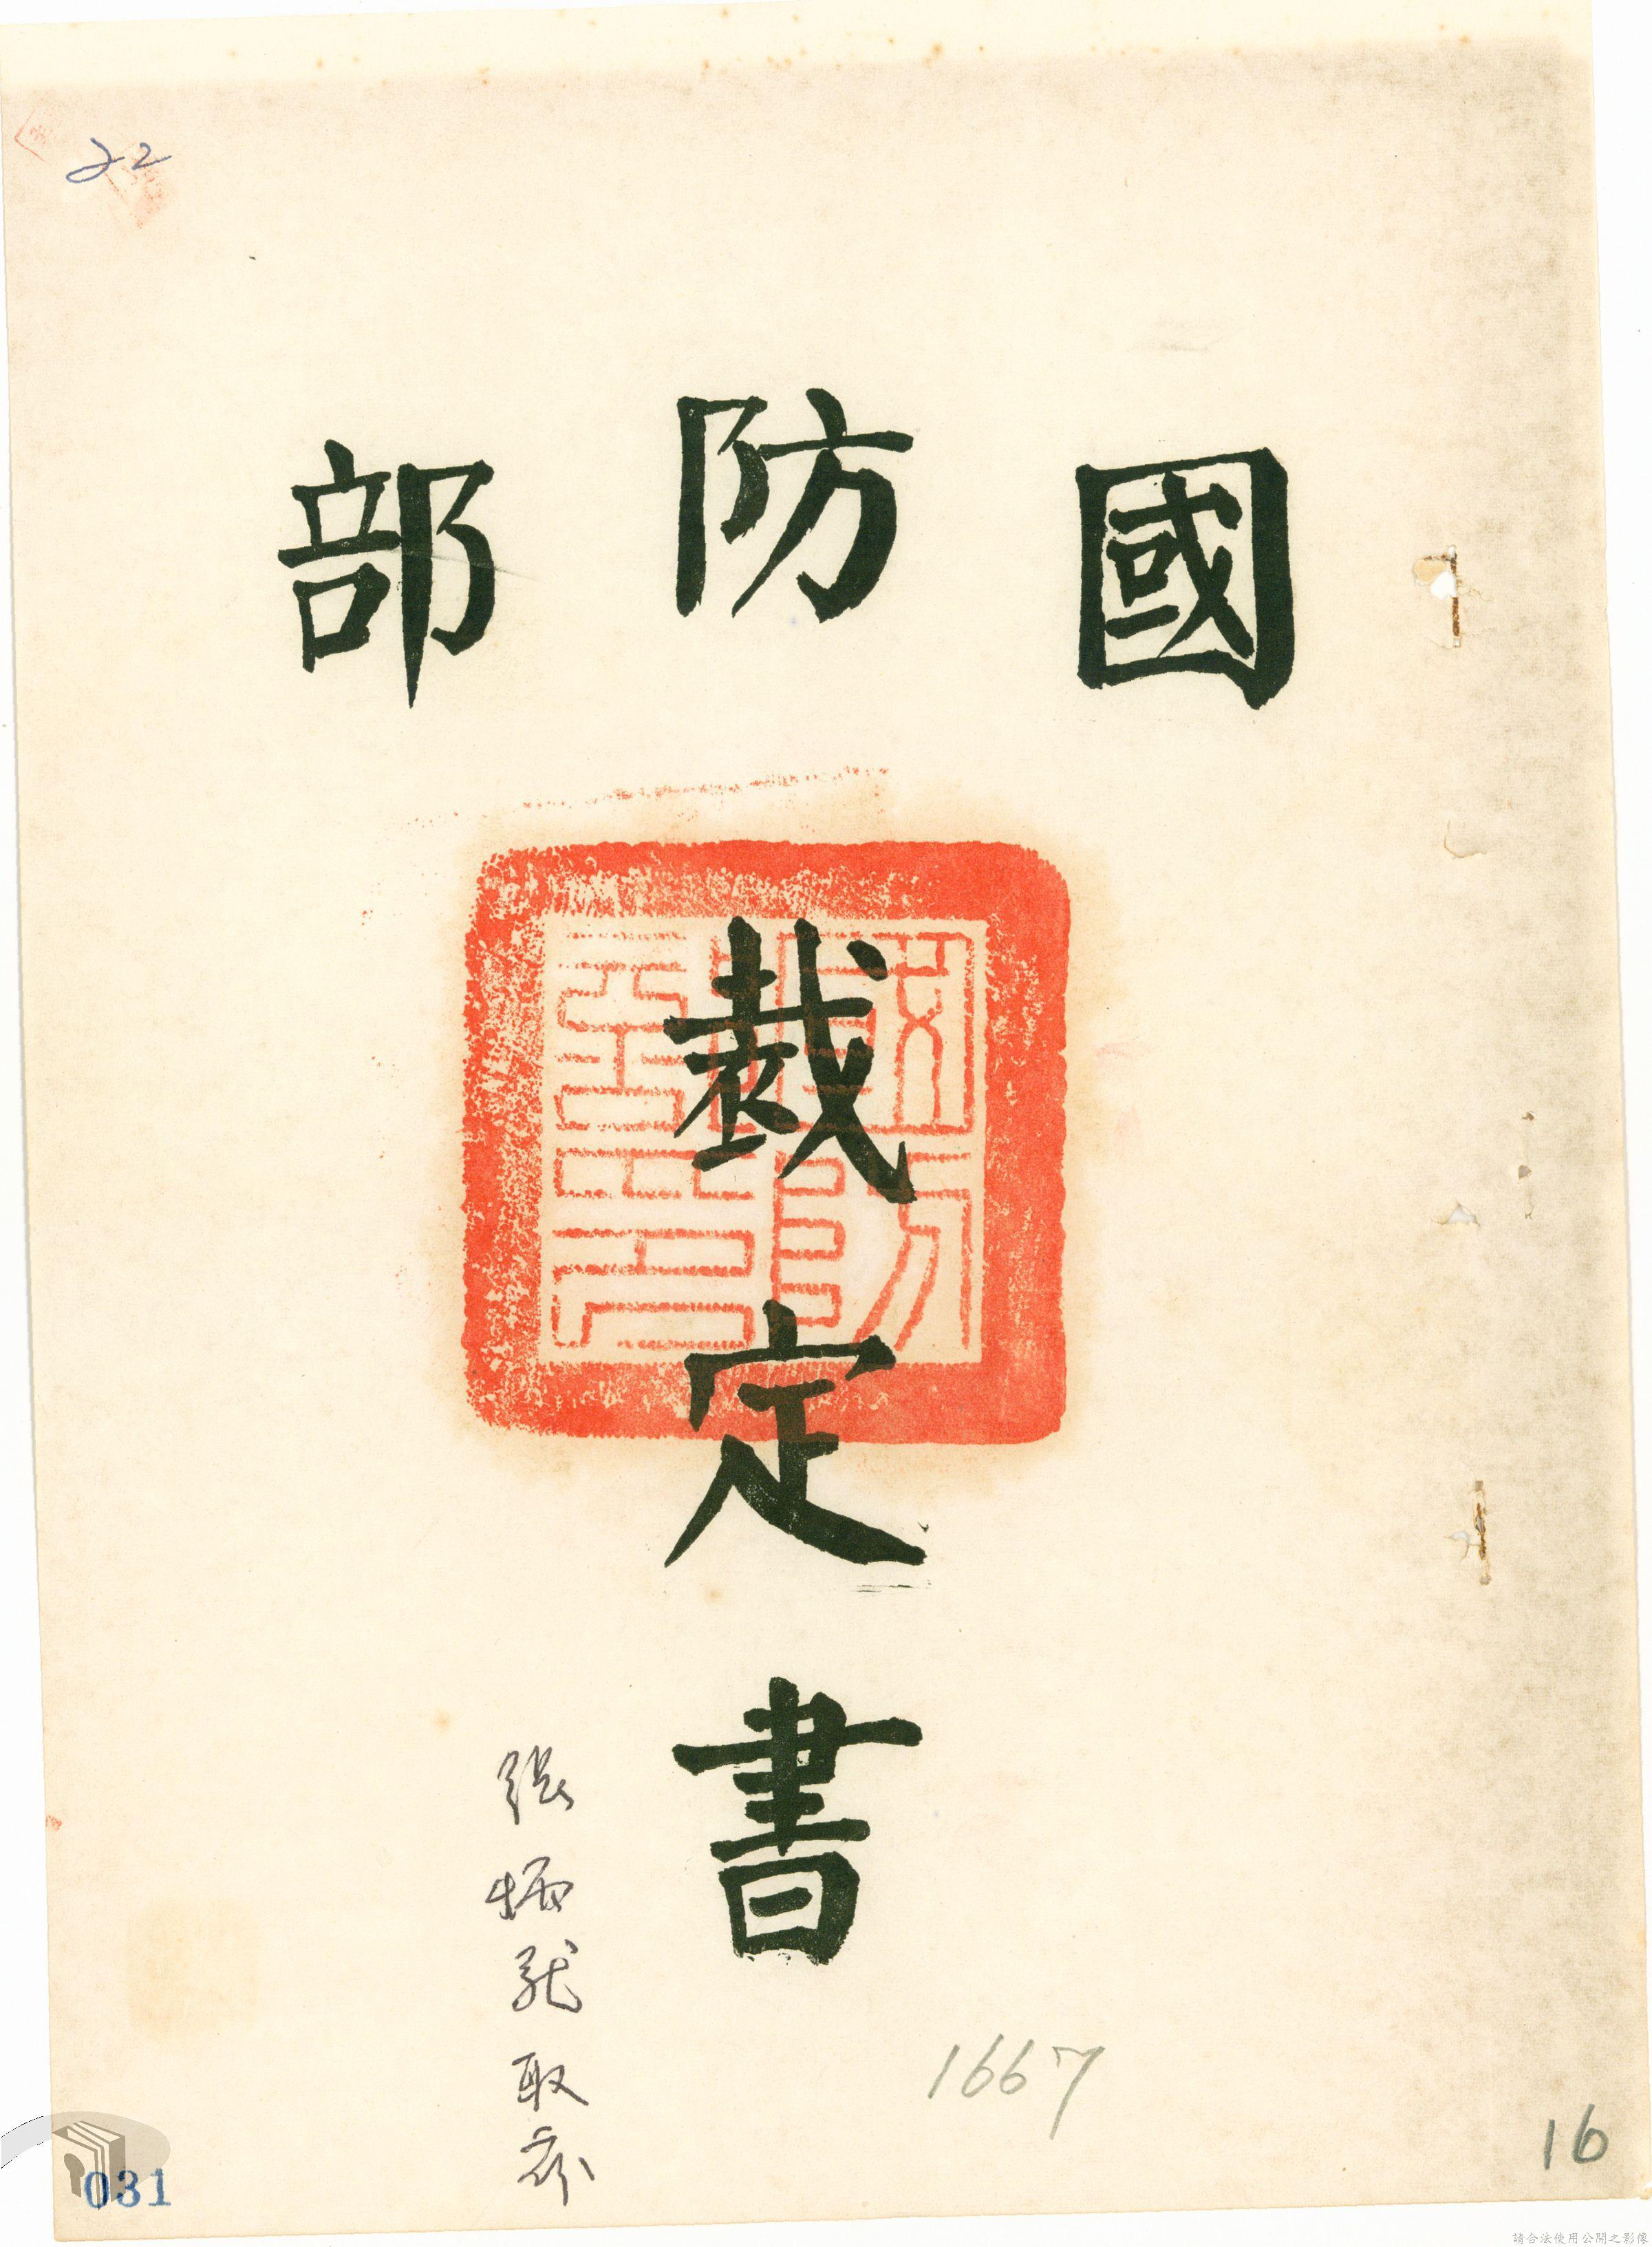 22
國防部
裁定書
張柄龍取存
1667
16
031
請合法使用公開之影像